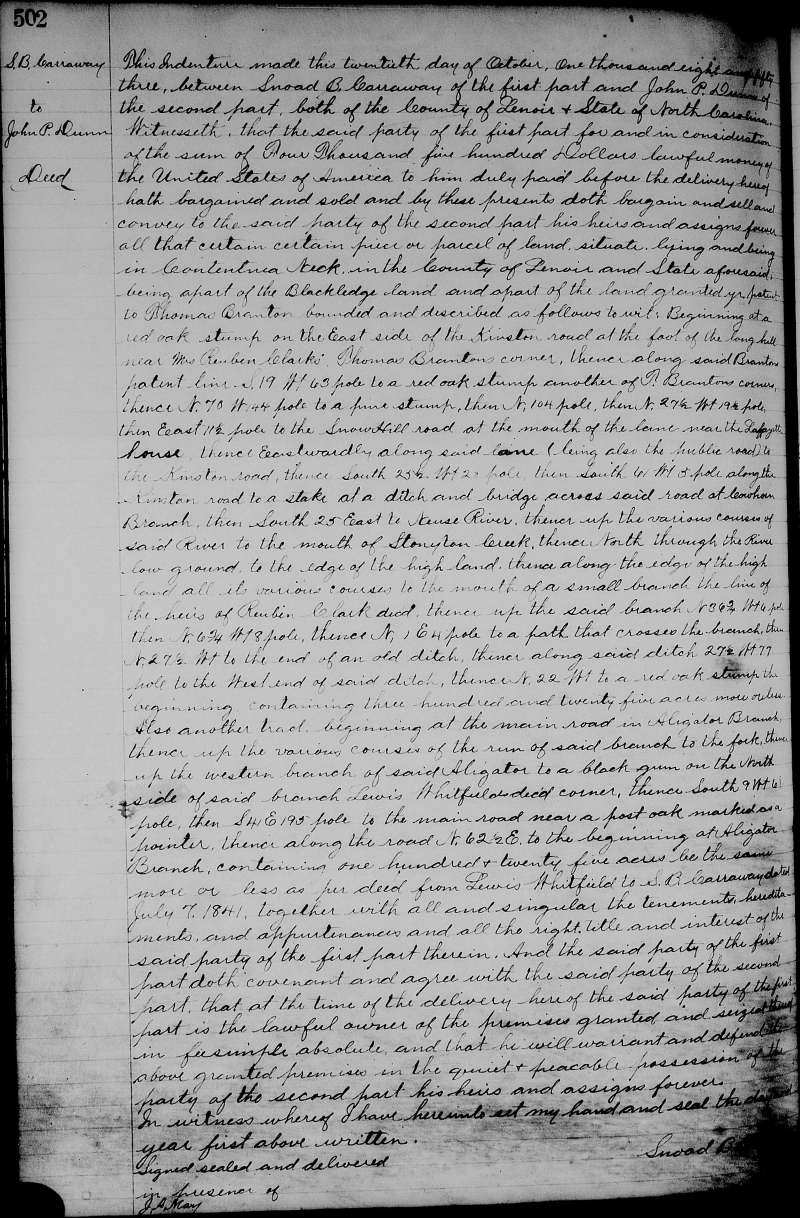 502
S. B. Carraway
to
John P. Dunn
Deed
This Indenture made this twentieth day of October, One thousand eight and fifty
three, between Snoad B. Carraway of the first part and John P. Dunn of
the second part, both of the County of Lenoir & State of North Carolina,
Witnesseth, that the said party of the first part for and in consideration
of the sum of Four Thousand five hundred Dollars lawful money of
the United States of America to him duly paid before the delivery hereof
hath bargained and sold and by these presents doth bargain and sell and
convey to the said party of the second part his heirs and assigns forever
all that certain certain piece or parcel of land, situate, lying and being
in Contentnea Neck, in the County of Lenoir and State aforesaid,
being apart of the Blackledge land and apart of the land granted
to Thomas Branton bounded and described as follows to wit: Beginning at a
red oak stump on the East side of the Kinston road at the foot of the long hill
near Mrs Reuben Clarks, Thomas Brantons corner, thence along said Brantons
patent line S. 19 Wt 63 pole to a red oak stump another of T. Brantons corners,
thence N. 70 W. 44 pole to a pine stump, then N, 104 pole, then N. 27½ Wt 19½ pole,
then East 11½ pole to the Snow Hill road at the mouth of the lane near the Lafayette
house, thence Eastwardly along said lane (being also the public road) to
the Kinston road, thence South 25½ Wt pole, then South 61 Wt 5 pole along the
Kinston road to a stake at a ditch and bridge across said road at Cowhorn
Branch, then South 25 East to Neuse River, thence up the various courses of
said River to the mouth of Stoneyton Creek, thence North through the River
low ground, to the edge of the high land, thence along the edge of the high
land all its various courses to the mouth of a small branch the line of
the heirs of Reuben Clark decd, thence up the said branch N 36¾ Wt 6 pole
then N. 6¾ Wt 8 pole, thence N, 1 E 4 pole to a path that crosses the branch, then
N. 27½ Wt to the end of an old ditch, thence along said ditch 27½ Wt 77
pole to the West end of said ditch, thence N. 22 Wt to a red oak stump the
beginning, containing three hundred and twenty five acres more or less
Also another tract, beginning at the main road in Aligator Branch,
thence up the various courses of the run of said branch to the fork, thence
up the western branch of said Aligator to a black gum on the North
side of said branch Lewis Whitfields decd corner, thence South 9 Wt 61
pole, then S 4 E 195 pole to the main road near a post oak marked as a
pointer, thence along the road N. 62½ E. to the beginning at Aligator
Branch, containing one hundred & twenty five acres be the same
more or less as per deed from Lewis Whitfield to S. B. Carraway dated
July 7, 1841, together with all and singular the tenements, heredita-
ments, and appurtenances and all the right, title and interest of the
said party of the first part therein. And the said party of the first
part doth covenant and agree with the said party of the second
part, that at the time of the delivery hereof the said party of the first
part is the lawful owner of the premises granted and seized thereof
in feesimple absolute, and that he will warrant and defend the
above granted premises in the quiet & peacable possession of the
party of the second part his heirs and assigns forever.
In witness whereof I have hereunto set my hand and seal the day and
year first above written.
Signed sealed and delivered
Snoad B.
in presence of
J. A. May